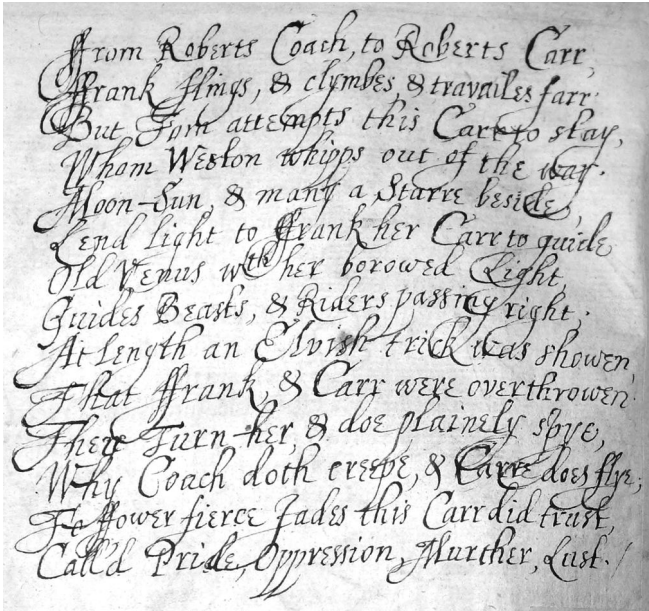 ffrom Roberts Coach, to Roberts Carr,
ffrank flings, & clymbes, & travailes farr.
But Tom attempts this Carr to stay,
Whom Weston whipps out of the way.
Moon-Sun, & many a Starre beside,
Lend light to ffrank her Carr to guide
Old Venus wth her borowed Light,
Guides Beasts, & Riders passing right,
At length an Elvish trick was showen
That ffrank, & Carr were overthrowen.
There Turn her, & doe plainely spye,
Why Coach doth creepe, & Carre does flye,
To ffower fierce Jades this Carr did trust,
Call'd Pride, Oppression, Murther, Lust.